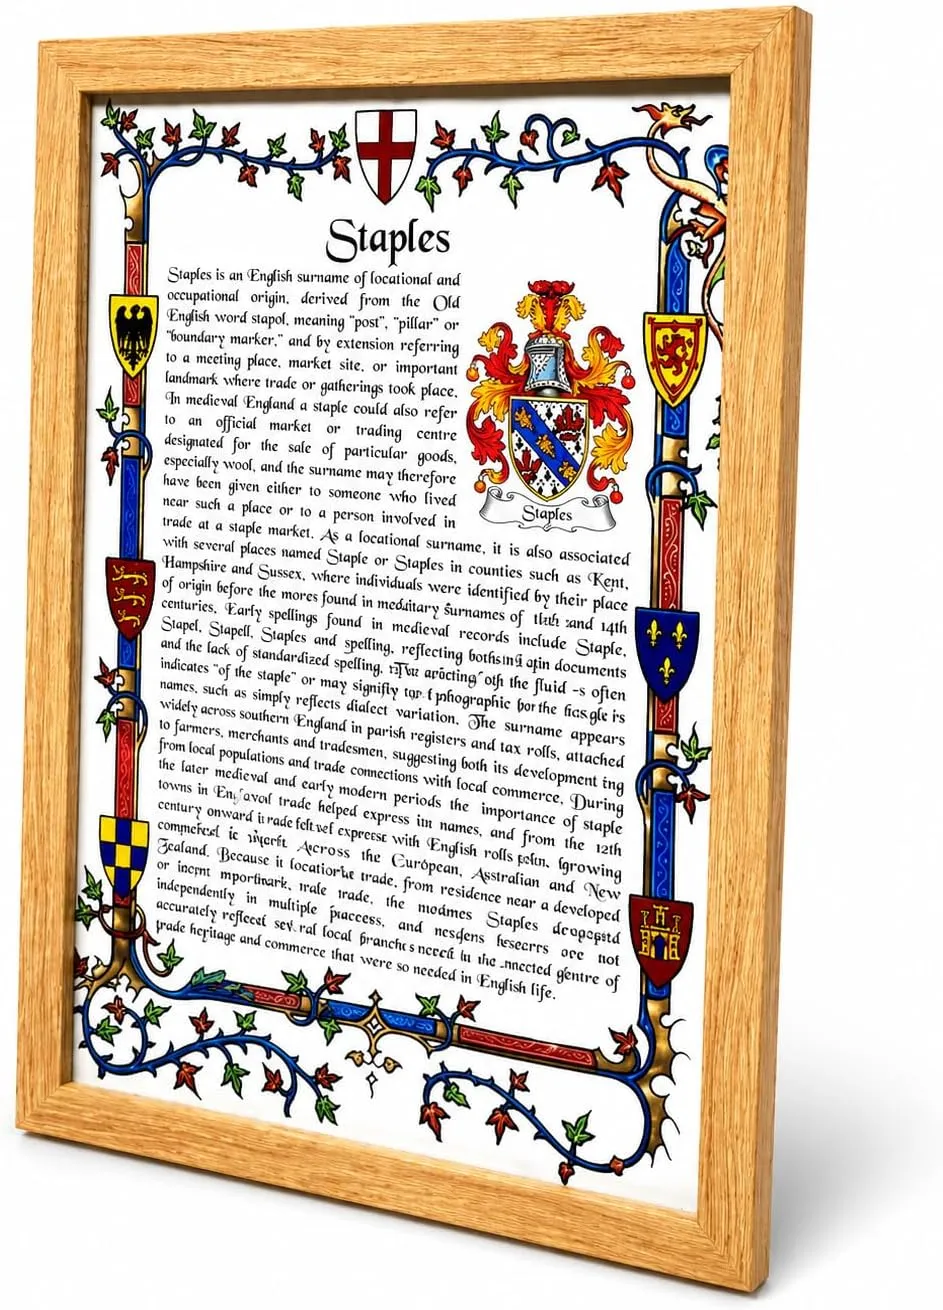 Staples
Staples is an English surname of locational and
occupational origin, derived from the Old
English word stapol, meaning "post", "pillar" or
"boundary marker," and by extension referring
to a meeting place, market site, or important
landmark where trade or gatherings took place.
In medieval England a staple could also refer
to an official market or trading centre
designated for the sale of particular goods,
especially wool, and the surname may therefore
have been given either to someone who lived
near such a place or to a person involved in
trade at a staple market. As a locational surname, it is also associated
with several places named Staple or Staples in counties such as Kent,
Hampshire and Sussex, where individuals were identified by their place
of origin before the mores found in surnames of and 14th
centuries. Early spellings found in medieval records include Staple,
Stapel, Stapell, Staples and spelling, reflecting documents
and the lack of standardized spelling, the fluid -s often
indicates "of the staple" or may
names, such as simply reflects dialect variation. The surname appears
widely across southern England in parish registers and tax rolls, attached
to farmers, merchants and tradesmen, suggesting both its development ing
from local populations and trade connections with local commerce. During
the later medieval and early modern periods the importance of staple
towns in trade helped express in names, and from the 12th
century onward with English rolls growing
Across the European, Australian and New
Zealand. Because it trade, from residence near a developed
or trade, the modmes Staples
independently in multiple and not
accurately local in the of
trade heritage and commerce that were so needed in English life.
Staples